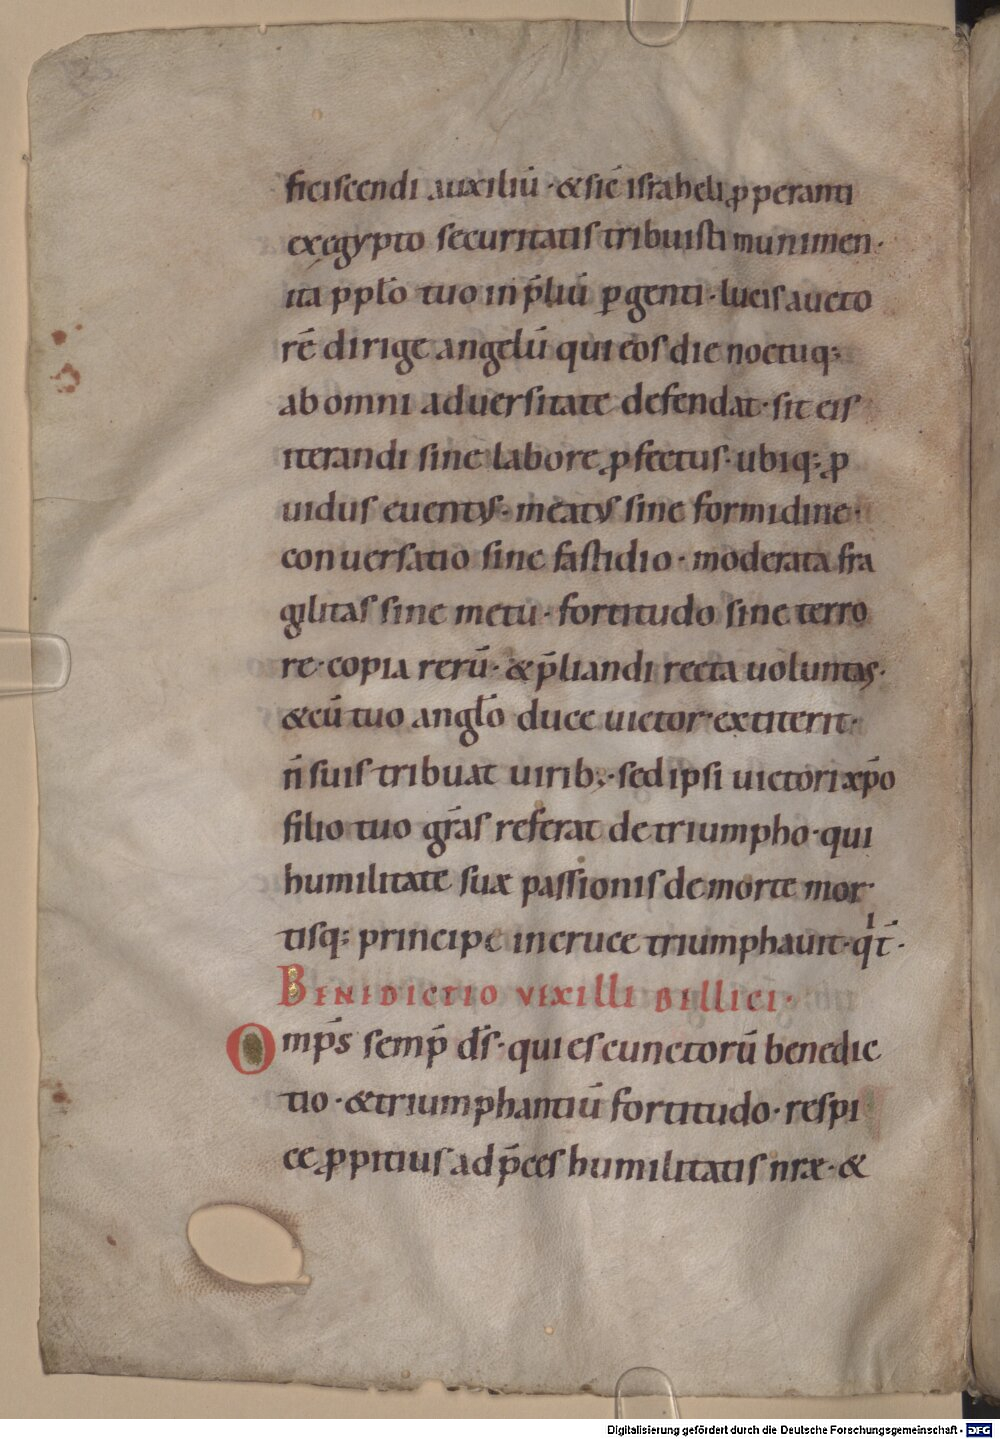 ficiscendi auxiliū · & sic̄ israheli ꝓperanti
ex egypto securitatis tribuisti munimen ·
ita pplō tuo in p̄liū ꝑgenti · lucis aucto
rē dirige angelū qui eos die noctuq;
ab omni aduersitate defendat · sit eis
iterandi sine labore ꝓfectus · ubiq; ꝓ
uidus euentus · meatus sine formidine ·
conuersatio sine fastidio · moderata fra
gilitas sine metu · fortitudo sine terro
re · copia rerū · & p̄liandi recta uoluntas ·
& cū tuo anglo duce uictor extiterit ·
n̄ suis tribuat uirib; · sed ipsi uictori xp̄o
filio tuo grās referat de triumpho · qui
humilitate suæ passionis de morte mor
tisq; principe in cruce triumphauit · q̍ t̄ ·
BENIDICTIO VEXILLI BELLICI ·
Omp̄s semp̄ d̄s · qui es cunctorū benedic
tio · & triumphantiū fortitudo · respi
ce ꝓpitius ad p̄ces humilitatis nr̄æ · &
Digitalisierung gefördert durch die Deutsche Forschungsgemeinschaft - DFG